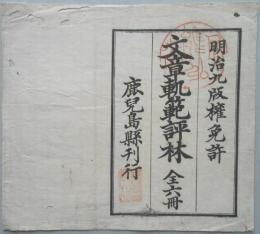 明治九版權免許
文章軌範評林 全六冊
鹿兒島縣刊行